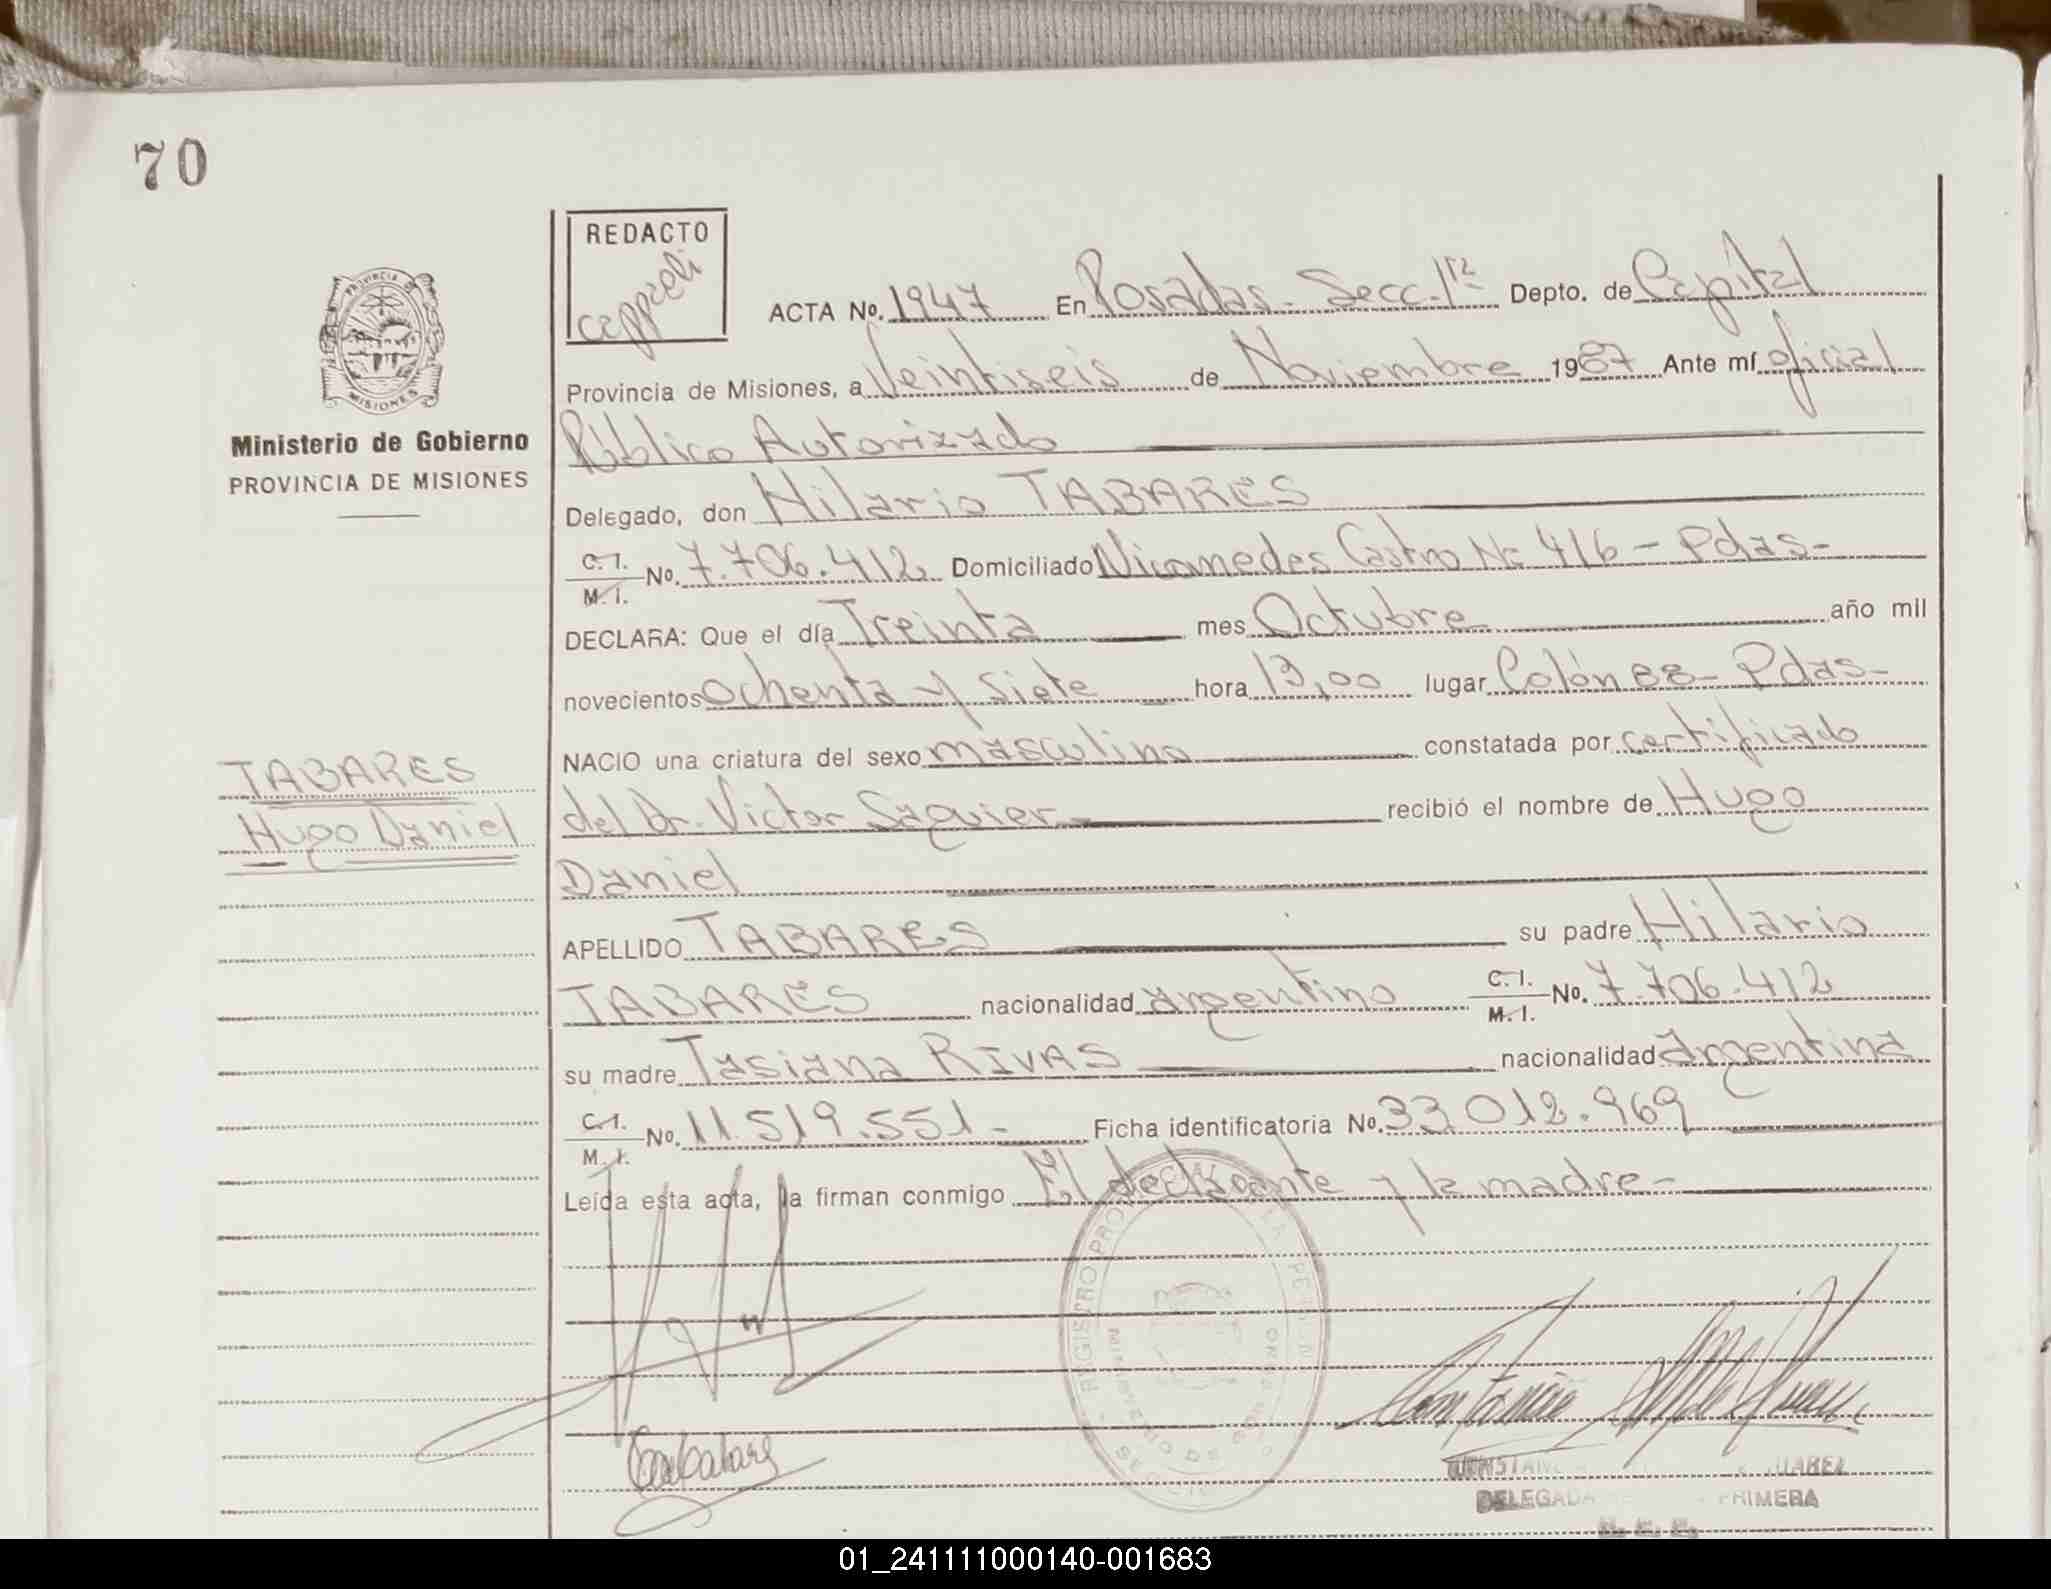 70
REDACTO
cappeli
PROVINCIA DE
MISIONES
Ministerio de Gobierno
PROVINCIA DE MISIONES
TABARES
Hugo Daniel
ACTA No. 1947 En Posadas - Secc. 1ra Depto. de Capital
Provincia de Misiones, a Veintiseis de Noviembre 1987 Ante mí oficial
Público Autorizado
Delegado, don Hilario TABARES
C. I. M. I. No. 7.706.412 Domiciliado Nicomedes Castro Nº 416 - Pdas -
DECLARA: Que el día Treinta mes Octubre año mil
novecientos Ochenta y Siete hora 13,00 lugar Colón 88 - Pdas -
NACIO una criatura del sexo masculino constatada por certificado
del Dr. Victor Saguier recibió el nombre de Hugo
Daniel
APELLIDO TABARES su padre Hilario
TABARES nacionalidad argentino C. I. M. I. No. 7.706.412
su madre Tasiana RIVAS nacionalidad argentina
C. I. M. I. No. 11.519.551 - Ficha identificatoria No. 33.012.969
Leída esta acta, la firman conmigo El declarante y la madre -
DELEGADA PRIMERA
01_241111000140-001683